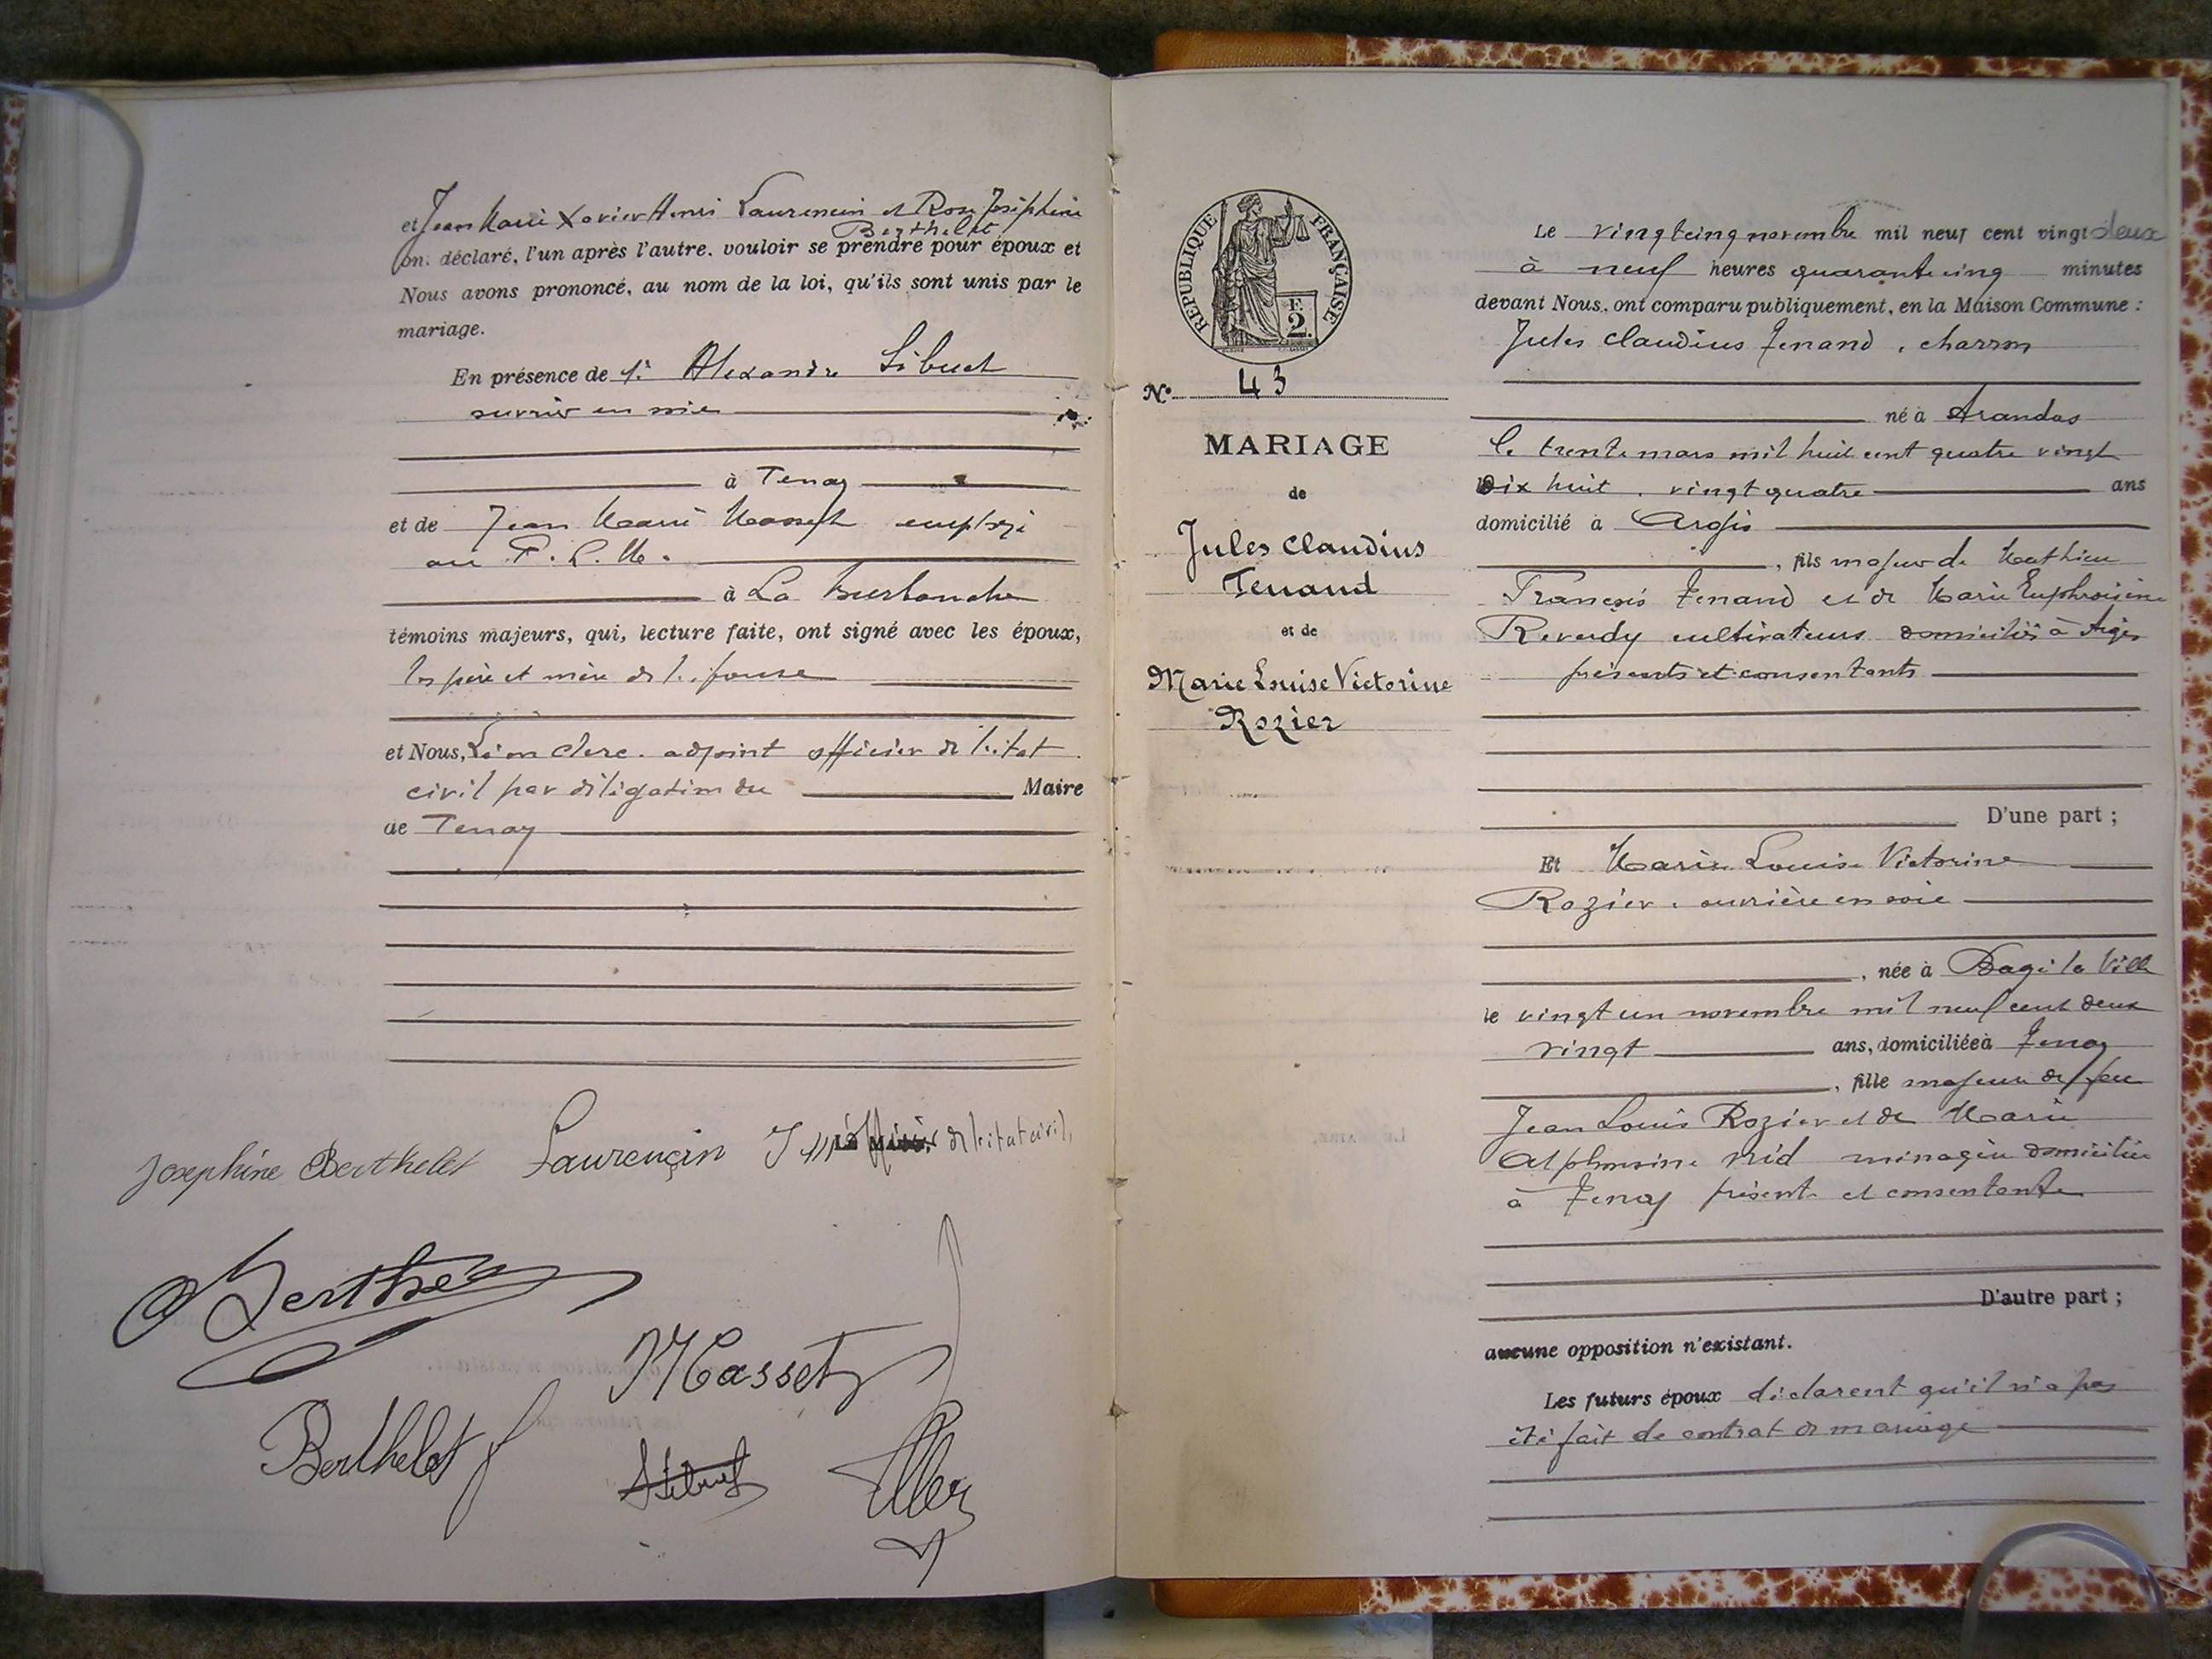 et Jean Marie Xavier Henri Laurencin et Rose Joséphine
Berthelet
ont déclaré, l'un après l'autre, vouloir se prendre pour époux et
Nous avons prononcé, au nom de la loi, qu'ils sont unis par le
mariage.
En présence de 1º Alexandre Sibuet
ouvrier en soie
à Tenay
et de Jean Marie Masset employé
au P. L. M.
à La Burbanche
témoins majeurs, qui, lecture faite, ont signé avec les époux,
les père et mère de l'épouse
et Nous, Léon Clerc. adjoint officier de l'état
civil par délégation du Maire
de Tenay
Josephine Berthelet Laurençin de l'état civil,
Berthelet
Masset
Berthelet
Sibuet
RÉPUBLIQUE FRANÇAISE
F.
2
Nº 43
MARIAGE
de
Jules Claudius
Tenand
et de
Marie Louise Victorine
Rozier
Le vingt cinq novembre mil neuf cent vingt deux
à neuf heures quarante cinq minutes
devant Nous, ont comparu publiquement, en la Maison Commune :
Jules Claudius Tenand, charron
né à Arandas
le trente mars mil huit cent quatre vingt
dix huit, vingt quatre ans
domicilié à Argis
, fils majeur de Mathieu
François Tenand et de Marie Euphroisine
Reverdy cultivateurs domiciliés à Argis
présents et consentants
D'une part ;
Et Marie Louise Victorine
Rozier, ouvrière en soie
, née à Bagé la Ville
le vingt un novembre mil neuf cent deux
vingt ans, domiciliée à Tenay
, fille majeure de feu
Jean Louis Rozier et de Marie
Alphonsine ménagère domiciliée
à Tenay présente et consentante
D'autre part ;
aucune opposition n'existant.
Les futurs époux déclarent qu'il n'a pas
été fait de contrat de mariage